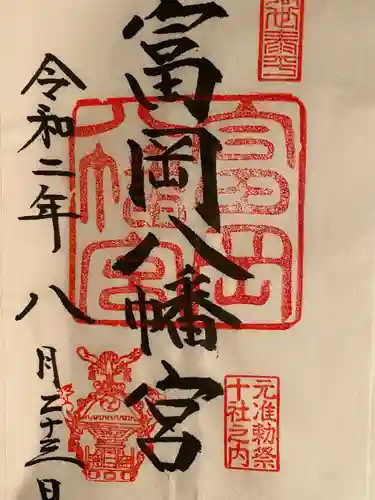 富岡八幡宮
泰平
富岡
八幡宮
元准勅祭
十社之内
令和二年八月二十三日